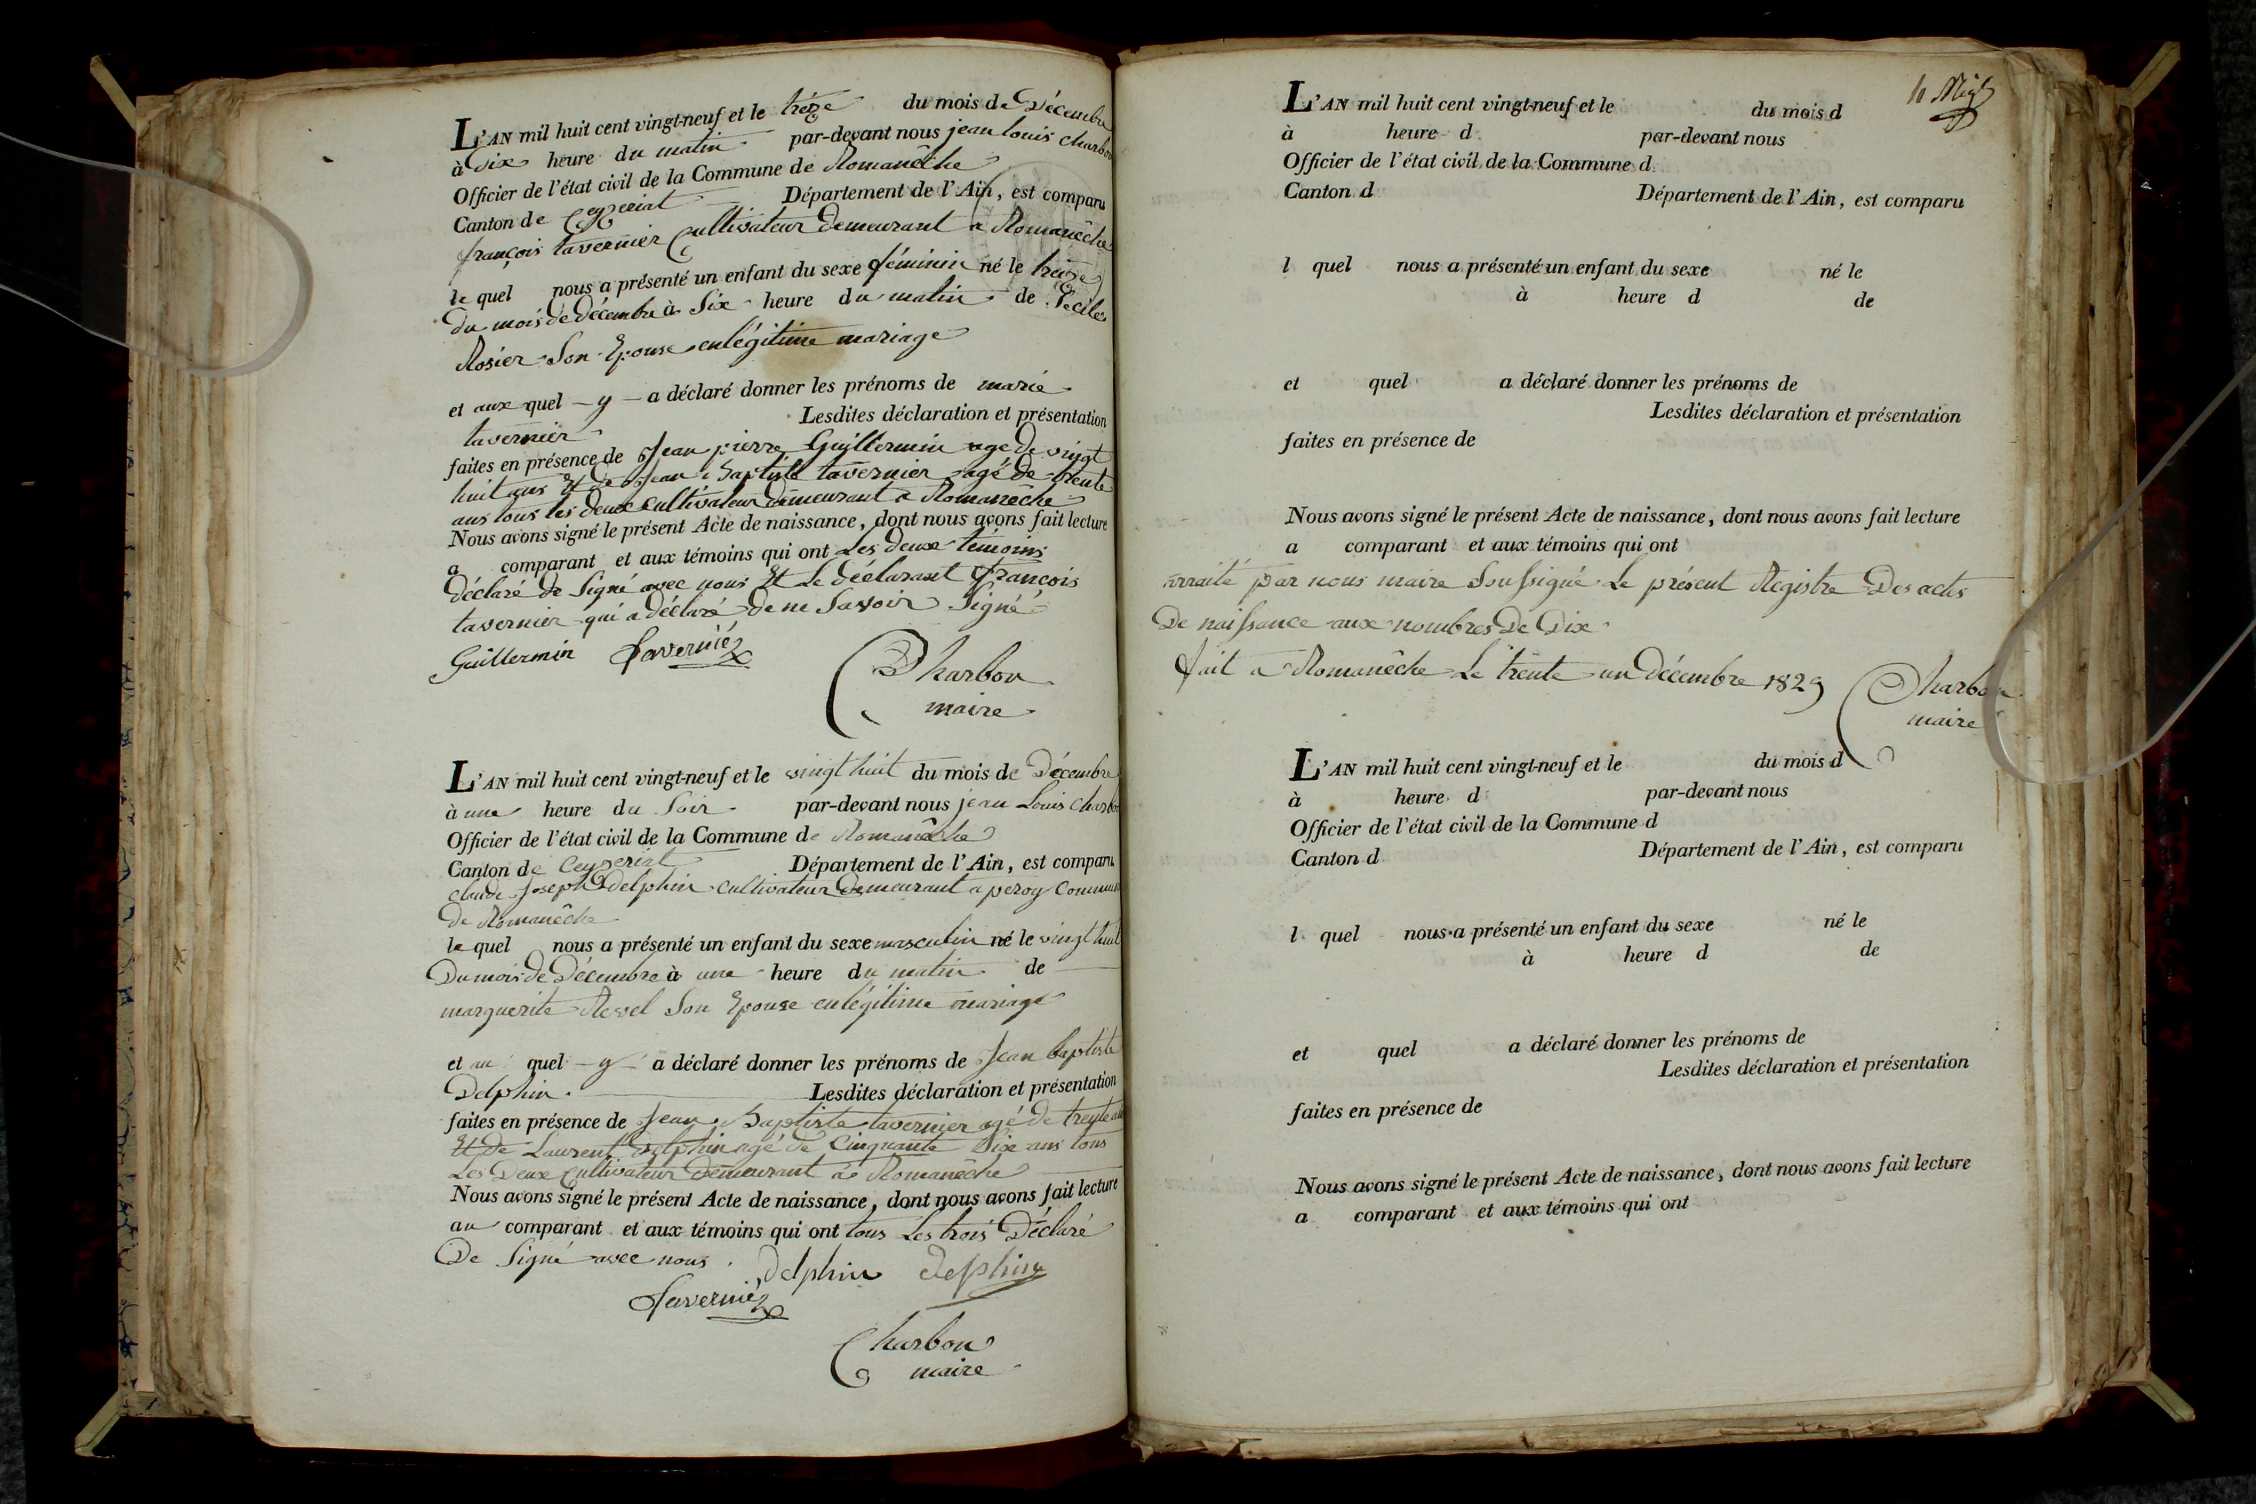 L'AN mil huit cent vingt-neuf et le treize du mois de Décembre
à Dix heure du matin par-devant nous jean louis charbon
Officier de l'état civil de la Commune de Romanêche
Canton de Ceyzeriat Département de l'Ain, est comparu
françois tavernier Cultivateur demeurant a Romanêche
le quel nous a présenté un enfant du sexe féminin né le treize
Du mois de Décembre à Six heure du matin de Cecile
Rosier Son Epouse en légitime mariage
et aux quel - y - a déclaré donner les prénoms de marie
tavernier Lesdites déclaration et présentation
faites en présence de Jean pierre Guillermin age de vingt
huit ans Et de Jean Baptiste tavernier agé de trente
ans tous les deux Cultivateur demeurant a Romanêche
Nous avons signé le présent Acte de naissance, dont nous avons fait lecture
a comparant et aux témoins qui ont Les deux temoins
déclaré de Signé avec nous Et Le Déclarant François
tavernier qui a déclaré de ne Savoir Signé
Guillermin Tavernié
Charbon
maire
L'AN mil huit cent vingt-neuf et le vingt huit du mois de Décembre
à une heure du Soir par-devant nous jean Louis Charbon
Officier de l'état civil de la Commune de Romanêche
Canton de Ceyzeriat Département de l'Ain, est comparu
claude Joseph Delphin cultivateur Demeurant a peroy Commune
De Romanêche
le quel nous a présenté un enfant du sexe masculin né le vingt huit
Du mois de Décembre à une heure du matin de
marguerite Revel Son Epouse en légitime mariage
et au quel - y - a déclaré donner les prénoms de Jean baptiste
Delphin. Lesdites déclaration et présentation
faites en présence de Jean Baptiste tavernier agé de trente ans
Et De Laurent Delphin agé de Cinquante Six ans tous
Les Deux Cultivateur Demeurant a Romanêche
Nous avons signé le présent Acte de naissance, dont nous avons fait lecture
au comparant et aux témoins qui ont tous Les trois Déclaré
De Signé avec nous. Delphin delphin
Tavernié
Charbon
maire
L'AN mil huit cent vingt-neuf et le du mois d
à heure d par-devant nous
Officier de l'état civil de la Commune d
Canton d Département de l'Ain, est comparu
l quel nous a présenté un enfant du sexe né le
à heure d de
et quel a déclaré donner les prénoms de
Lesdites déclaration et présentation
faites en présence de
Nous avons signé le présent Acte de naissance, dont nous avons fait lecture
a comparant et aux témoins qui ont
arraité par nous maire Soussigné Le présent Registre Des actes
De naissance aux nombres De Dix
fait a Romanêche Le trente un Décembre 1829 Charbon
maire
L'AN mil huit cent vingt-neuf et le du mois d
à heure d par-devant nous
Officier de l'état civil de la Commune d
Canton d Département de l'Ain, est comparu
l quel nous a présenté un enfant du sexe né le
à heure d de
et quel a déclaré donner les prénoms de
Lesdites déclaration et présentation
faites en présence de
Nous avons signé le présent Acte de naissance, dont nous avons fait lecture
a comparant et aux témoins qui ont